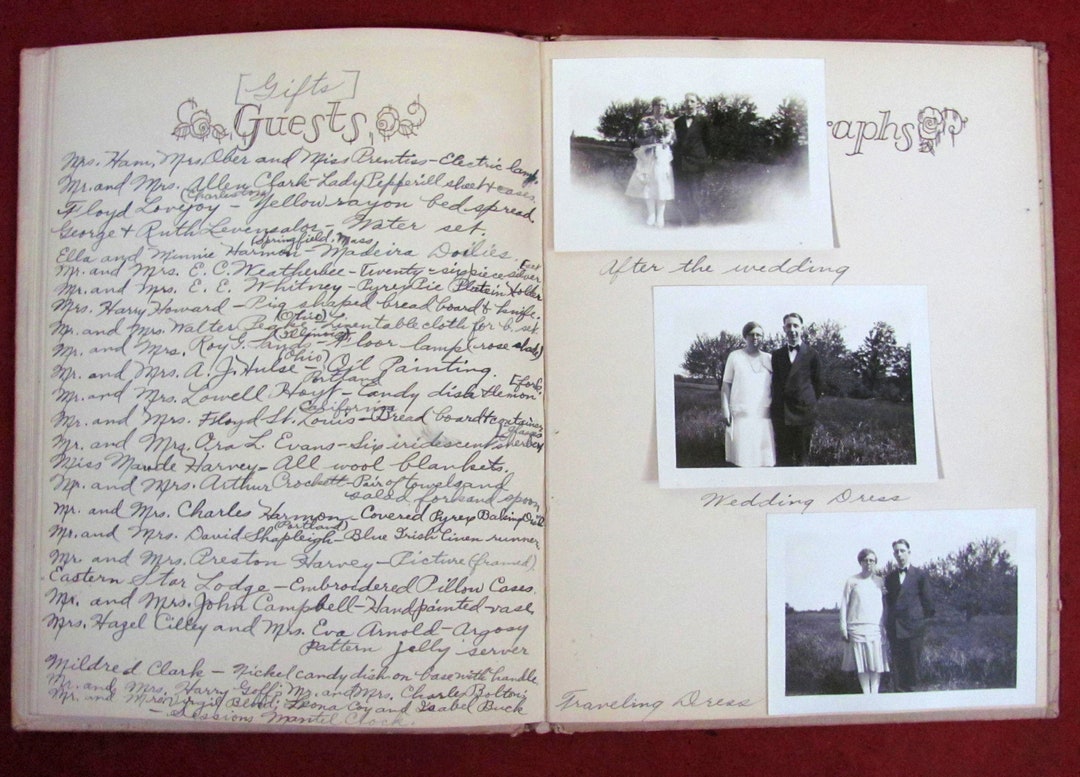 [Gifts]
Guests
Mrs. Ham, Mrs. Ober and Miss Prentiss - Electric lamp.
Mr. and Mrs. Allen Clark - Lady Pepperill sheet & cases.
(Charleston)
Floyd Lovejoy - Yellow rayon bed spread.
George & Ruth Levensalor - Water set.
(Springfield, Mass
Ella and Minnie Harmon - Madeira Doilies.
Mr. and Mrs. E. C. Weatherbee - Twenty-six piece silver set
Mr. and Mrs. E. E. Whitney - Pyrex Pie Plate in Holder
Mrs. Harry Howard - Pig shaped bread board & knife.
(Ohio)
Mr. and Mrs. Walter tablecloth for b. set.
(Illinois)
Mr. and Mrs. Roy - Floor lamp (rose shade)
(Ohio)
Mr. and Mrs. A. J. Hulse - Oil Painting.
Portland
Mr. and Mrs. Lowell Hoyt - Candy dish & lemon fork.
California
Mr. and Mrs. Floyd St. Louis - Bread board & container
Mr. and Mrs. Ara L. Evans - Six iridescent sherbet glasses
Miss Maude Harvey - All wool blankets.
Mr. and Mrs. Arthur Crockett - Pair of towels and
salad fork and spoon
Mr. and Mrs. Charles Harmon - Covered Pyrex Baking Dish
(Portland)
Mr. and Mrs. David Shapleigh - Blue Irish linen runner
Mr. and Mrs. Preston Harvey - Picture (framed)
Eastern Star Lodge - Embroidered Pillow Cases.
Mr. and Mrs. John Campbell - Handpainted vase
Mrs. Hazel Cilley and Mrs. Eva Arnold - Argosy
Pattern jelly server
Mildred Clark - Nickel candy dish on base with handle
Mr. and Mrs. Harry Goff; Mr. and Mrs. Charles
Mr. and Mrs. Virgil Leona Coy and Isabel Buck
- Sessions Mantel Clock.
raphs
After the wedding
Wedding Dress
Traveling Dress